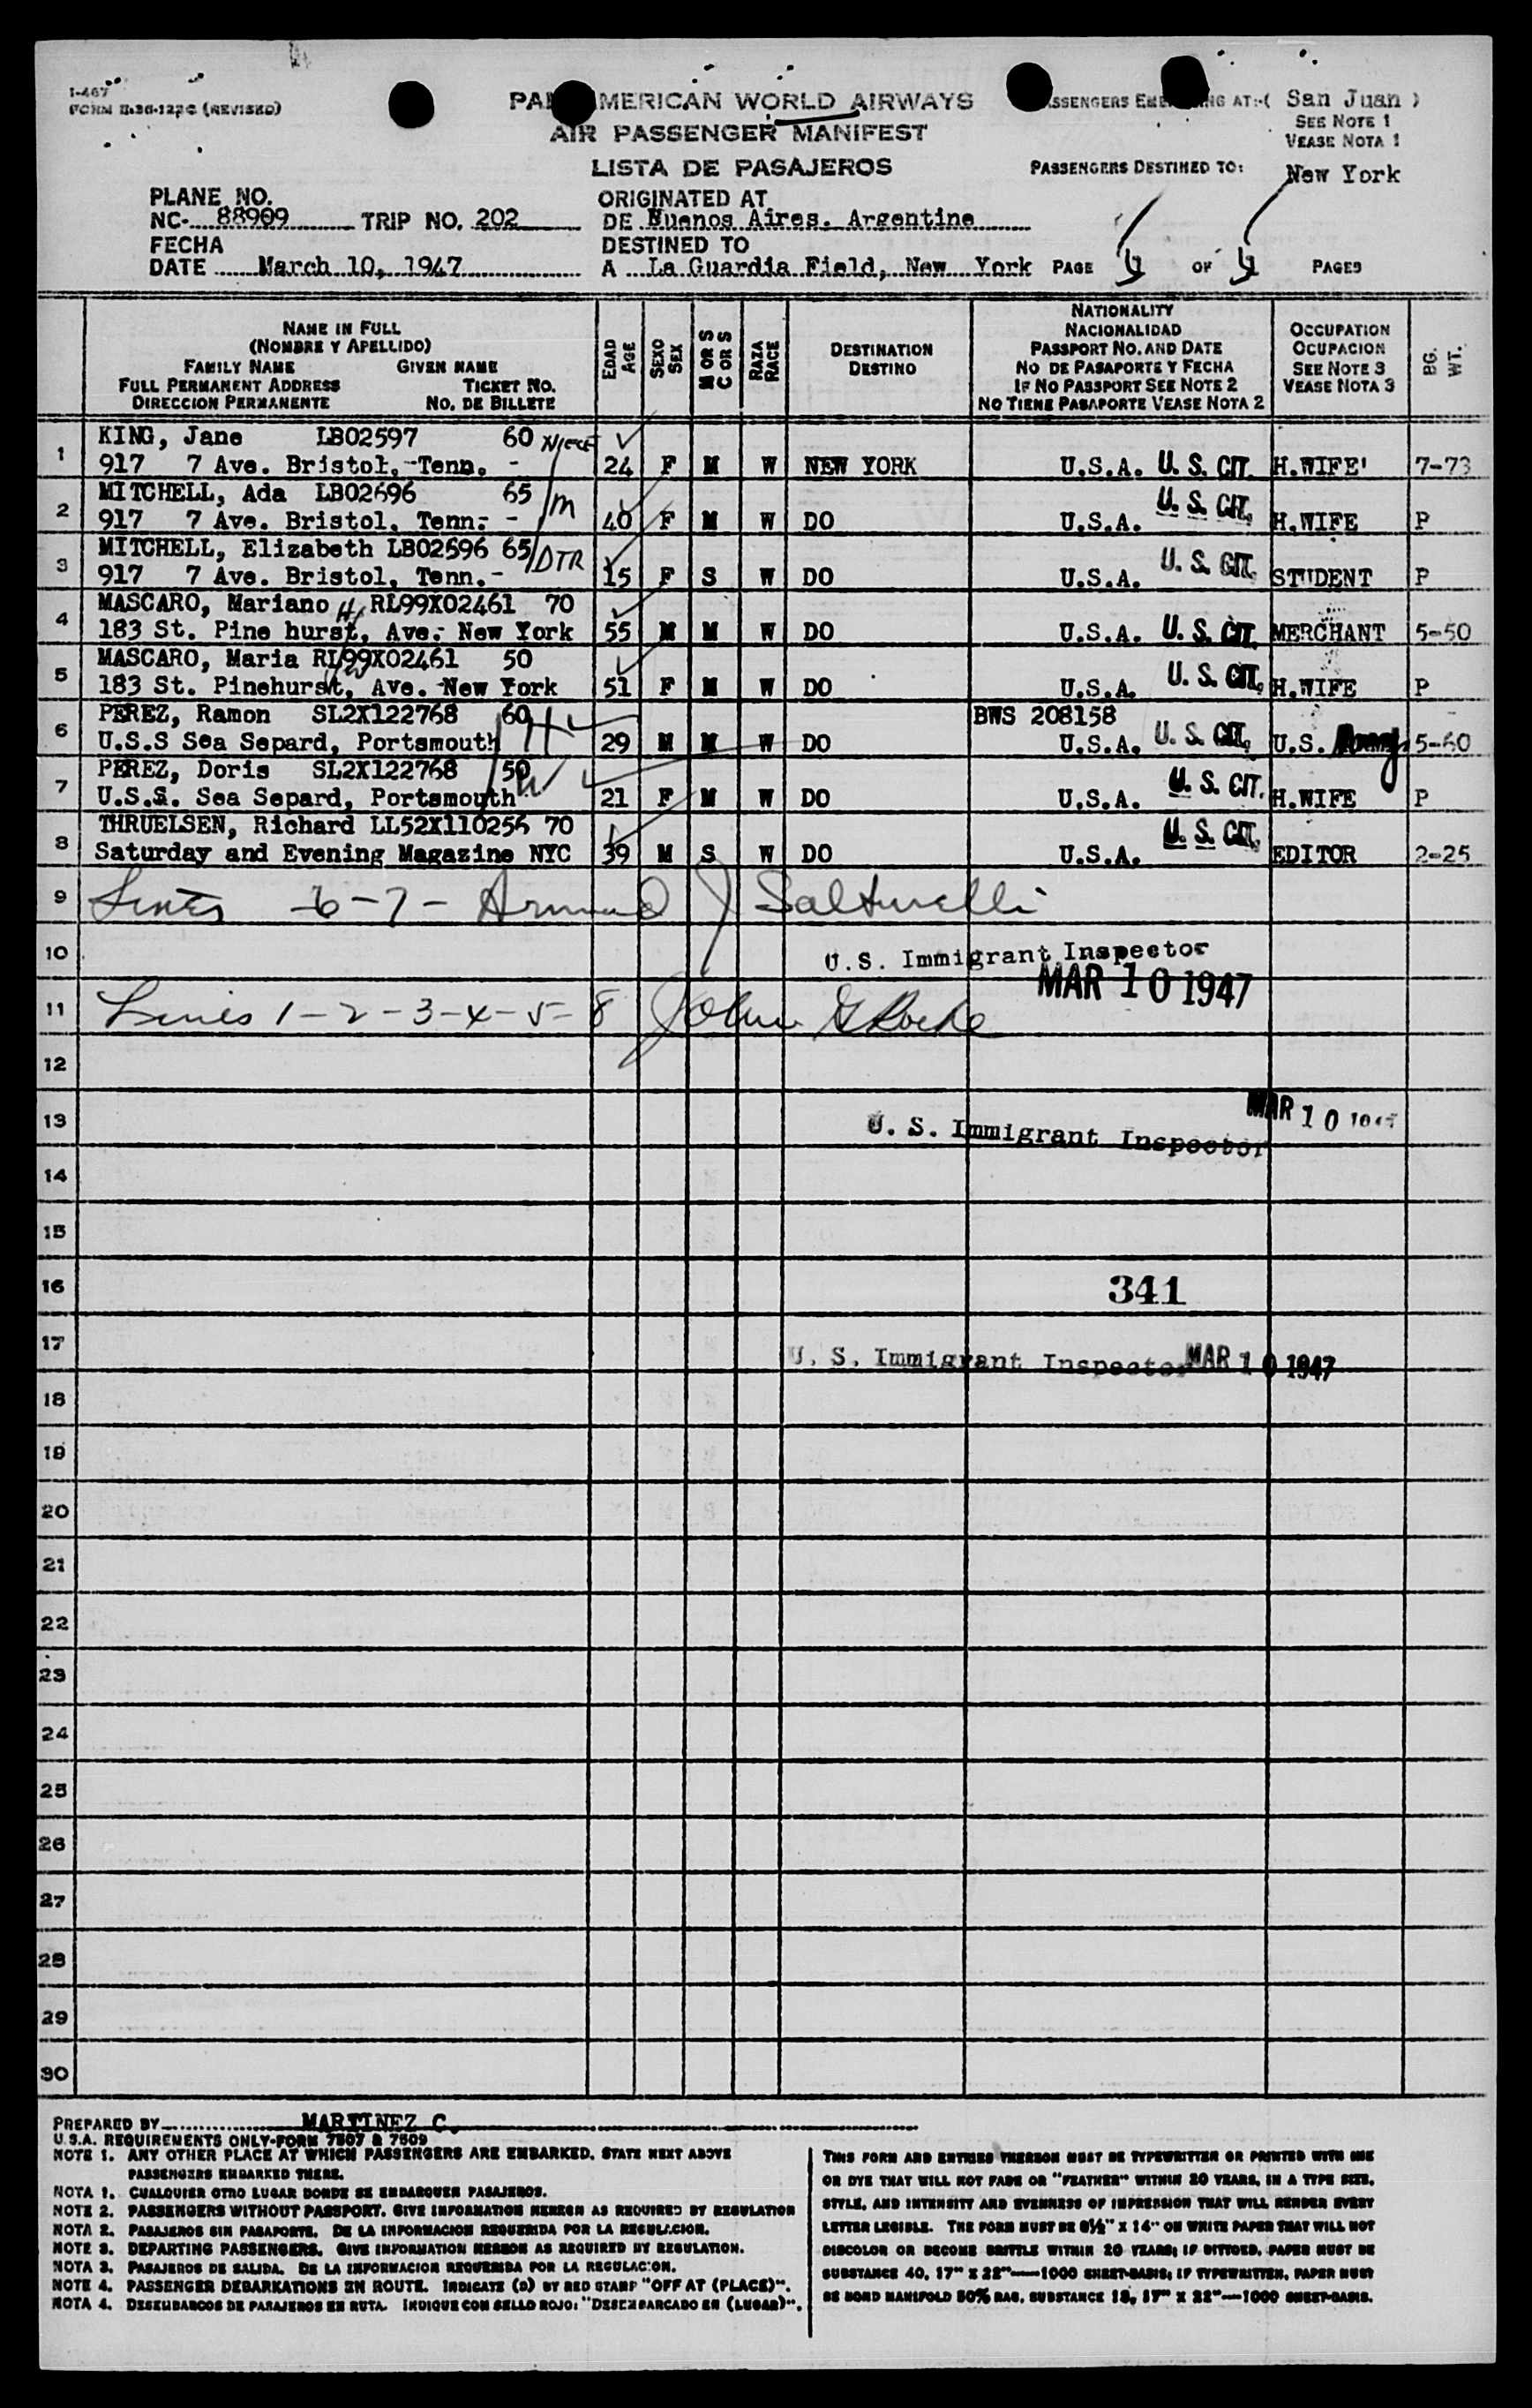 I-467
FORM
PAN AMERICAN WORLD AIRWAYS
AIR PASSENGER MANIFEST
LISTA DE PASAJEROS
San Juan )
SEE NOTE 1
VEASE NOTA 1
PASSENGERS DESTINED TO:
New York
PLANE NO.
NC- 88909 TRIP NO. 202
ORIGINATED AT
DE Buenos Aires. Argentine
FECHA
DATE March 10, 1947
DESTINED TO
A La Guardia Field, New York PAGE 4 OF 4 PAGES
NAME IN FULL
(NOMBRE Y APELLIDO)
FAMILY NAME GIVEN NAME
FULL PERMANENT ADDRESS TICKET NO.
DIRECCION PERMANENTE NO. DE BILLETE
EDAD AGE
SEXO SEX
M OR S C OR S
RAZA RACE
DESTINATION
DESTINO
NATIONALITY
NACIONALIDAD
PASSPORT NO. AND DATE
NO DE PASAPORTE Y FECHA
IF NO PASSPORT SEE NOTE 2
NO TIENE PASAPORTE VEASE NOTA 2
OCCUPATION
OCUPACION
SEE NOTE 3
VEASE NOTA 3
BG. WT.
1 KING, Jane LB02597 60 NIECE
917 7 Ave. Bristol, Tenn. - 24 F M W NEW YORK U.S.A. U. S. CIT. H.WIFE' 7-73
2 MITCHELL, Ada LB02696 65 M
917 7 Ave. Bristol, Tenn. - 40 F M W DO U.S.A. U. S. CIT. H.WIFE P
3 MITCHELL, Elizabeth LB02596 65 DTR
917 7 Ave. Bristol, Tenn.- 15 F S W DO U.S.A. U. S. CIT. STUDENT P
4 MASCARO, Mariano H RL99X02461 70
183 St. Pine hurst, Ave. New York 55 M M W DO U.S.A. U. S. CIT. MERCHANT 5-50
5 MASCARO, Maria RL99X02461 50
183 St. Pinehurst, Ave. New York 51 F M W DO U.S.A. U. S. CIT. H.WIFE P
6 PEREZ, Ramon SL2X122768 60 H BWS 208158
U.S.S Sea Separd, Portsmouth 29 M M W DO U.S.A. U. S. CIT. U.S. 5-60
7 PEREZ, Doris SL2X122768 50 W
U.S.S. Sea Separd, Portsmouth 21 F M W DO U.S.A. U. S. CIT. H.WIFE P
8 THRUELSEN, Richard LL52X110256 70
Saturday and Evening Magazine NYC 39 M S W DO U.S.A. U. S. CIT. EDITOR 2-25
9 Lines 6-7- Armand J
10 U.S. Immigrant Inspector
MAR 10 1947
11 Lines 1-2-3-4-5-8 John G Roche
12
13 U. S. Immigrant Inspector MAR 10 1947
14
15
16 341
17 U. S. Immigrant Inspector MAR 10 1947
18
19
20
21
22
23
24
25
26
27
28
29
30
PREPARED BY MARTINEZ C.
U.S.A. REQUIREMENTS ONLY-FORM 7507 & 7509
NOTE 1. ANY OTHER PLACE AT WHICH PASSENGERS ARE EMBARKED. STATE NEXT ABOVE
PASSENGERS EMBARKED THERE.
NOTA 1. CUALQUIER OTRO LUGAR DONDE SE EMBARQUEN PASAJEROS.
NOTE 2. PASSENGERS WITHOUT PASSPORT. GIVE INFORMATION HEREON AS REQUIRED BY REGULATION
NOTA 2. PASAJEROS SIN PASAPORTE. DE LA INFORMACION REQUERIDA POR LA REGULACION.
NOTE 3. DEPARTING PASSENGERS. GIVE INFORMATION HEREON AS REQUIRED BY REGULATION.
NOTA 3. PASAJEROS DE SALIDA. DE LA INFORMACION REQUERIDA POR LA REGULACION.
NOTE 4. PASSENGER DEBARKATIONS EN ROUTE. INDICATE (D) BY RED STAMP "OFF AT (PLACE)".
NOTA 4. DESEMBARCOS DE PASAJEROS EN RUTA. INDIQUE CON SELLO ROJO: "DESEMBARCADO EN (LUGAR)".
THIS FORM AND ENTRIES THEREON MUST BE TYPEWRITTEN OR PRINTED WITH INK
OR DYE THAT WILL NOT FADE OR "FEATHER" WITHIN 20 YEARS, IN A TYPE SIZE,
STYLE, AND INTENSITY AND EVENNESS OF IMPRESSION THAT WILL RENDER EVERY
LETTER LEGIBLE. THE FORM MUST BE 8½" X 14" ON WHITE PAPER THAT WILL NOT
DISCOLOR OR BECOME BRITTLE WITHIN 20 YEARS; IF DITTOED, PAPER MUST BE
SUBSTANCE 40, 17" X 22"—1000 SHEET-BASIS; IF TYPEWRITTEN, PAPER MUST
BE BOND MANIFOLD 50% RAG, SUBSTANCE 18, 17" X 22"—1000 SHEET-BASIS.